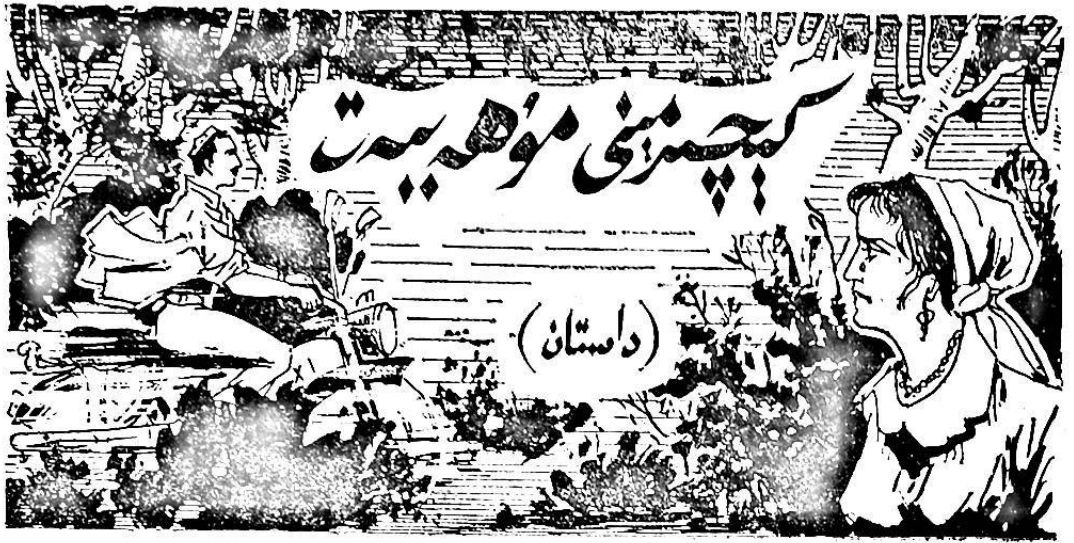 كېچىر مېنى مۇھەببەت
(داستان)